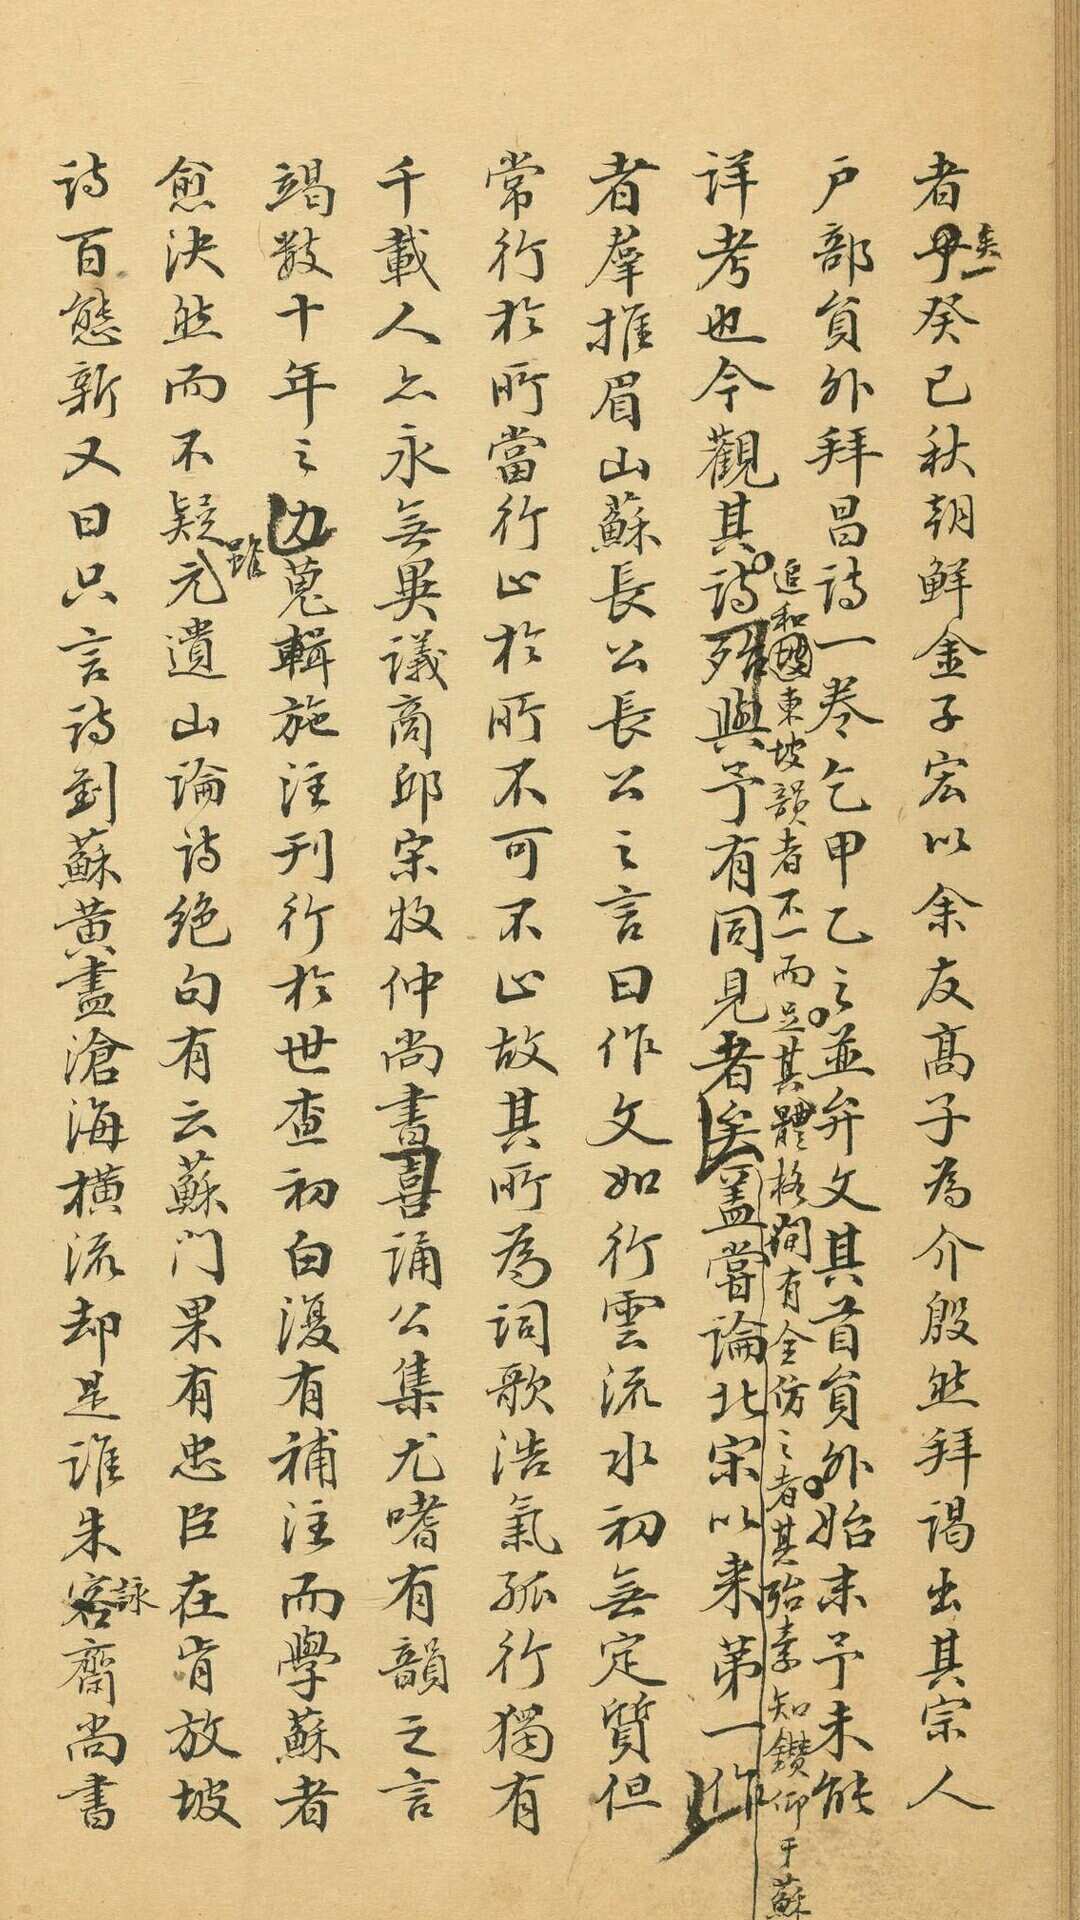 者癸巳秋朝鮮金子宏以余友高子為介殷然拜謁出其宗人
戶部員外拜昌詩一卷乞甲乙之並弁文其首員外始末予未能
追和東坡韻者不一而足其體格間有全仿之者其殆素知鑽仰于蘇
詳考也今觀其詩殆與予有同見者矣蓋嘗論北宋以来第一作
者羣推眉山蘇長公長公之言曰作文如行雲流水初無定質但
常行於所當行止於所不可不止故其所為詞歌浩氣孤行獨有
千載人亦永無異議商邱宋牧仲尚書喜誦公集尤嗜有韻之言
竭數十年之力蒐輯施注刊行於世查初白復有補注而學蘇者
愈決然而不疑元遺山論詩絕句有云蘇門果有忠臣在肯放坡
雖
詩百態新又曰只言詩到蘇黄盡滄海橫流却是誰朱客齋尚書
詠